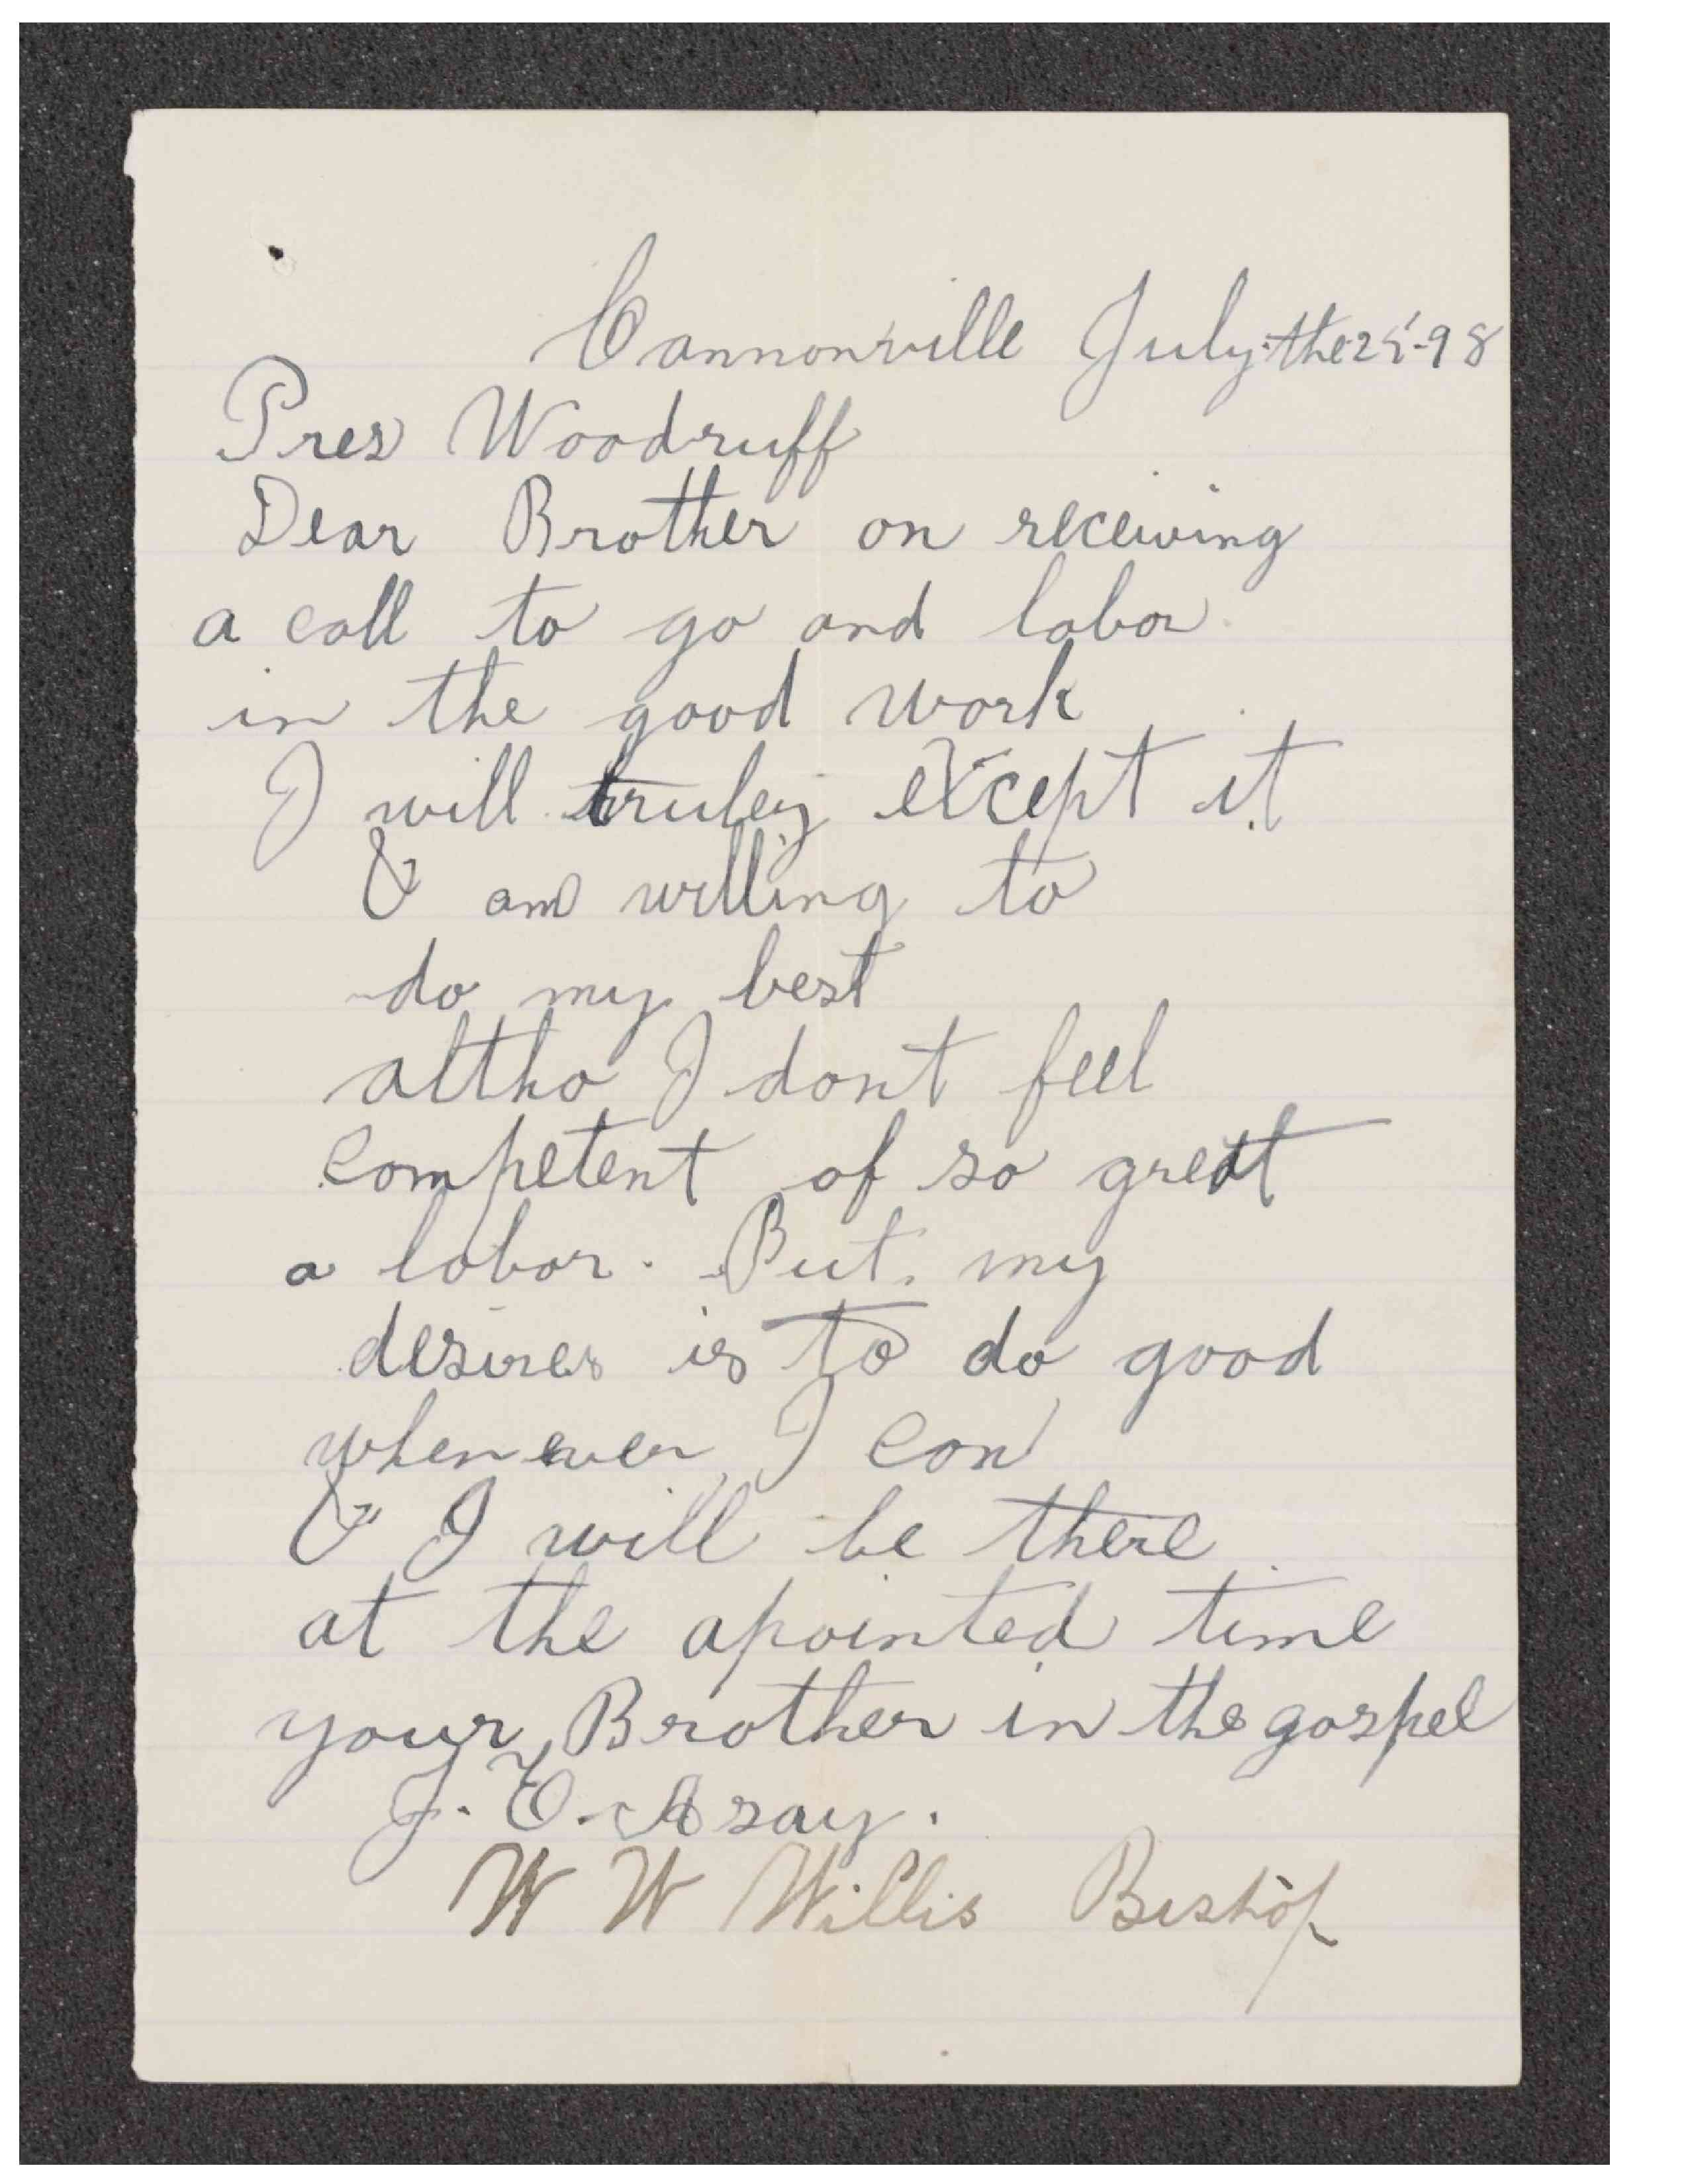 Cannonville July the 25-98
Pres Woodruff
Dear Brother on receiving
a call to go and labor
in the good work
I will truley except it
& am willing to
do my best
altho I dont feel
competent of so great
a labor. But my
desires is to do good
when ever I can
& I will be there
at the apointed time
your Brother in the gospel
J. E. Asay.
W W Willis Bishop